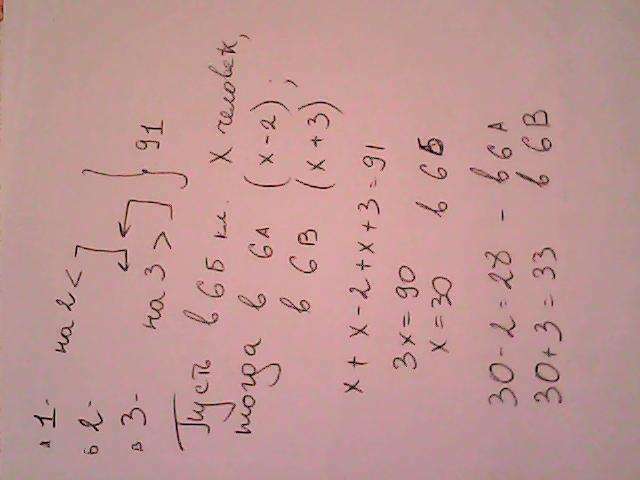 А 1- на 2 <
Б 2-
В 3- на 3 > } 91
Пусть в 6Б кл. X человек,
тогда в 6А (x-2);
в 6В (x+3)
x + x - 2 + x + 3 = 91
3x = 90
x = 30 в 6Б
30 - 2 = 28 - в 6А
30 + 3 = 33 в 6В